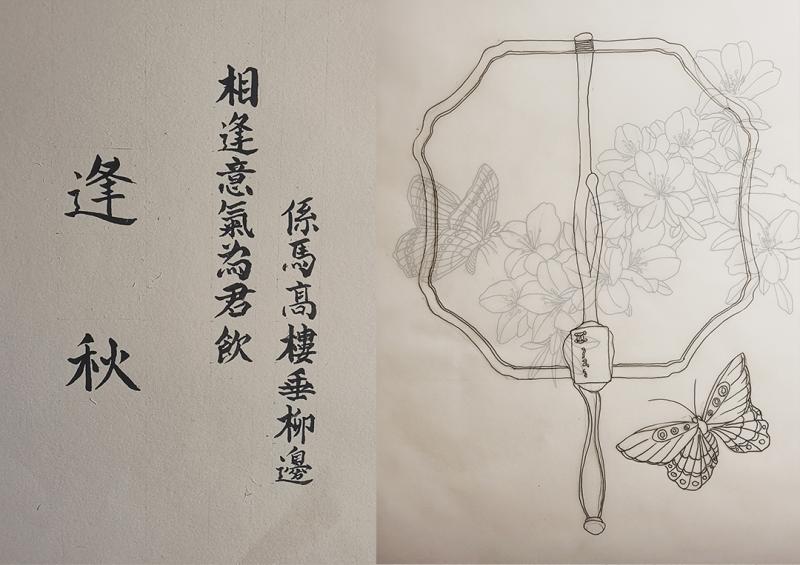 係馬高樓垂柳邊
相逢意氣為君飲
逢秋